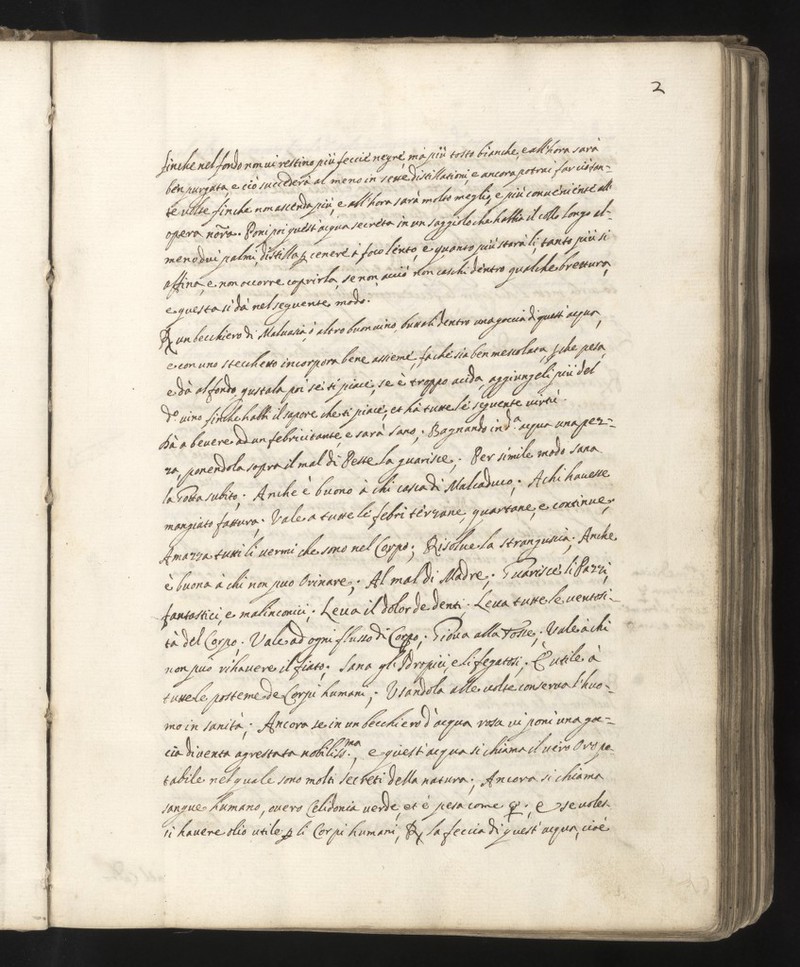 2
finche nel fondo non vi restino più feccie negre, mà più tosto bianche, e all'hora sarà
ben purgata, e ciò succederà al meno in sette distillationi, e ancora potrai far ciò tan=
te volte finche non ascenda più, e all'hora sarà molto meglio, e più conveniente all'
opera nr̃a. Poni poi quest'acqua secreta in un saggiolo che habbia il collo longo al=
meno dui palmi, distilla ꝑ cenere à foco lento, e quanto più starà lì, tanto più si
affina, e non occorre coprirla, se non acciò non caschi dentro qualche bruttura,
e questa si dà nel seguente modo.
℞ un becchiero di Malvasia, ò altro buon vino, buttali dentro una goccia di quest'acqua,
e con uno stecchetto incorpora bene assieme, fà che sia ben mescolata, ꝑche pesa,
e dà al fondo, gustala poi se ti piace, se è troppo acida, aggiungeli più del
dº vino finche habbi il sapore che ti piace, et hà tutte le seguente virtù.
Dà a bevere ad un febricitante, e sarà sano; Bagnando in dª acqua una pez=
za, ponendola sopra il mal di Peste la guarisce; Per simile modo sana
la Gotta subito; Anche è buono à chi casca di Malcaduco; A chi havesse
mangiato fattura; Vale a tutte le febri terzane quartane, e continue,
Amazza tutti li vermi che sono nel Corpo; Risolve la stranguria; Anche
è buona à chi non puo Orinare; Al mal di Madre; Guarisce li Pazzi,
fantastici, e malinconici; Leva il dolor de denti; Leva tutte le ventosi=
tà del Corpo; Vale ad ogni flusso di Corpo; Giova alla Tosse; Vale à chi
non può rihavere il fiato; Sana gl'Idropici e li fegatosi; È utile à
tutte le posteme de Corpi humani; Usandola alle volte conserva l'huo=
mo in sanità; Ancora se in un becchiero d'acqua rosa vi poni una goc=
cia diventa agrestata nobiliss.ma, e quest'acqua si chiama il vero Oro po=
tabile nel quale sono molti secreti della natura; Ancora si chiama
sangue humano, overo Celidonia verde, et è pesa come ☿; E se voles=
si havere olio utile ꝑ li Corpi humani, ℞ la feccia di quest'acqua, cioè